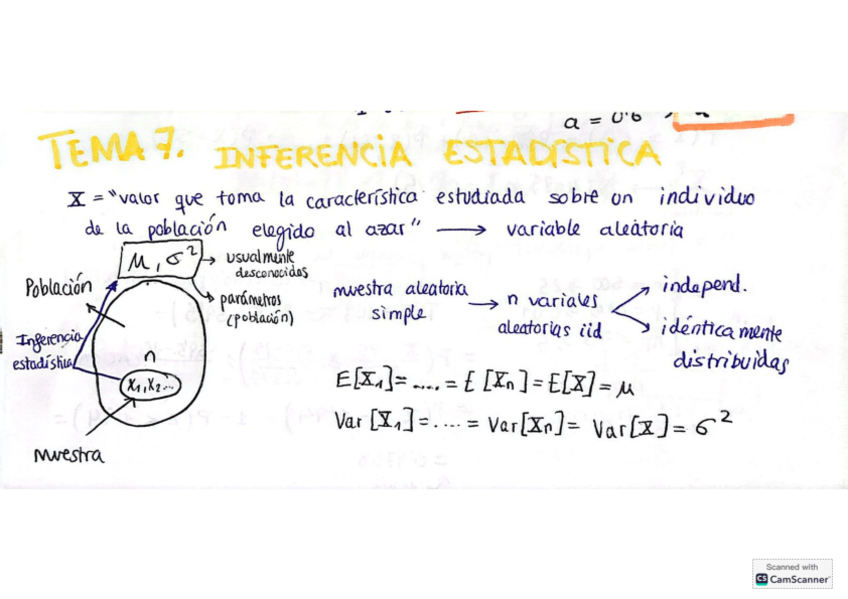 a = 0'6
TEMA 7. INFERENCIA ESTADÍSTICA
X = "valor que toma la característica estudiada sobre un individuo
de la población elegido al azar" → variable aleatoria
μ, σ² → usualmente
desconocidos
parámetros
(población)
Población
Inferencia
estadística
n
X₁, X₂...
muestra
muestra aleatoria
simple → n variales
aleatorias iid
independ.
idéntica mente
distribuidas
E[X₁] = .... = E[Xn] = E[X] = μ
Var[X₁] = .... = Var[Xn] = Var[X] = σ²
Scanned with
CS CamScanner